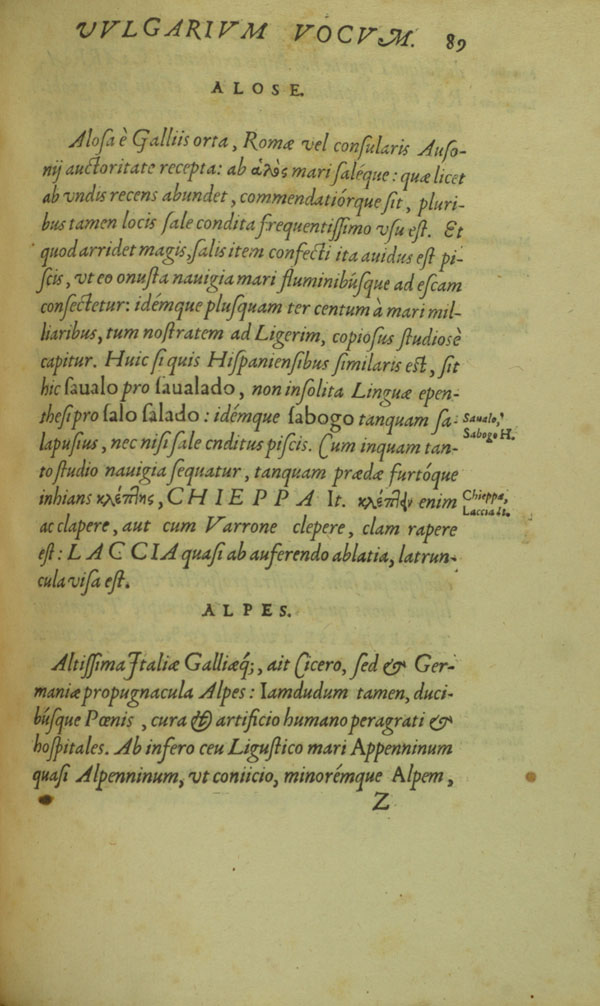 VVLGARIVM VOCVM. 89
ALOSE.
Alosa è Galliis orta, Romæ vel consularis Auso-
nij auctoritate recepta: ab ἁλὸς mari saléque: quæ licet
ab vndis recens abundet, commendatiórque sit, pluri-
bus tamen locis sale condita frequentissimo vsu est. Et
quod arridet magis, salis item confecti ita auidus est pi-
scis, vt eo onusta nauigia mari fluminibúsque ad escam
consectetur: idémque plusquam ter centum à mari mil-
liaribus, tum nostratem ad Ligerim, copiosus studiosè
capitur. Huic si quis Hispaniensibus similaris est, sit
hic saualo pro saualado, non insolita Linguæ epen-
thesi pro salo salado: idémque sabogo tanquam sa-
Saualo,
Sabogo H.
lapusius, nec nisi sale cnditus piscis. Cum inquam tan-
to studio nauigia sequatur, tanquam prædæ furtóque
inhians κλέπτης, CHIEPPA It. κλέπτῳν enim
Chieppa,
Laccia It.
ac clapere, aut cum Varrone clepere, clam rapere
est: LACCIA quasi ab auferendo ablatia, latrun-
cula visa est.
ALPES.
Altissima Italiæ Galliæq;, ait Cicero, sed & Ger-
maniæ propugnacula Alpes: Iamdudum tamen, duci-
búsque Pœnis, cura & artificio humano peragrati &
hospitales. Ab infero ceu Ligustico mari Appenninum
quasi Alpenninum, vt coniicio, minorémque Alpem,
Z